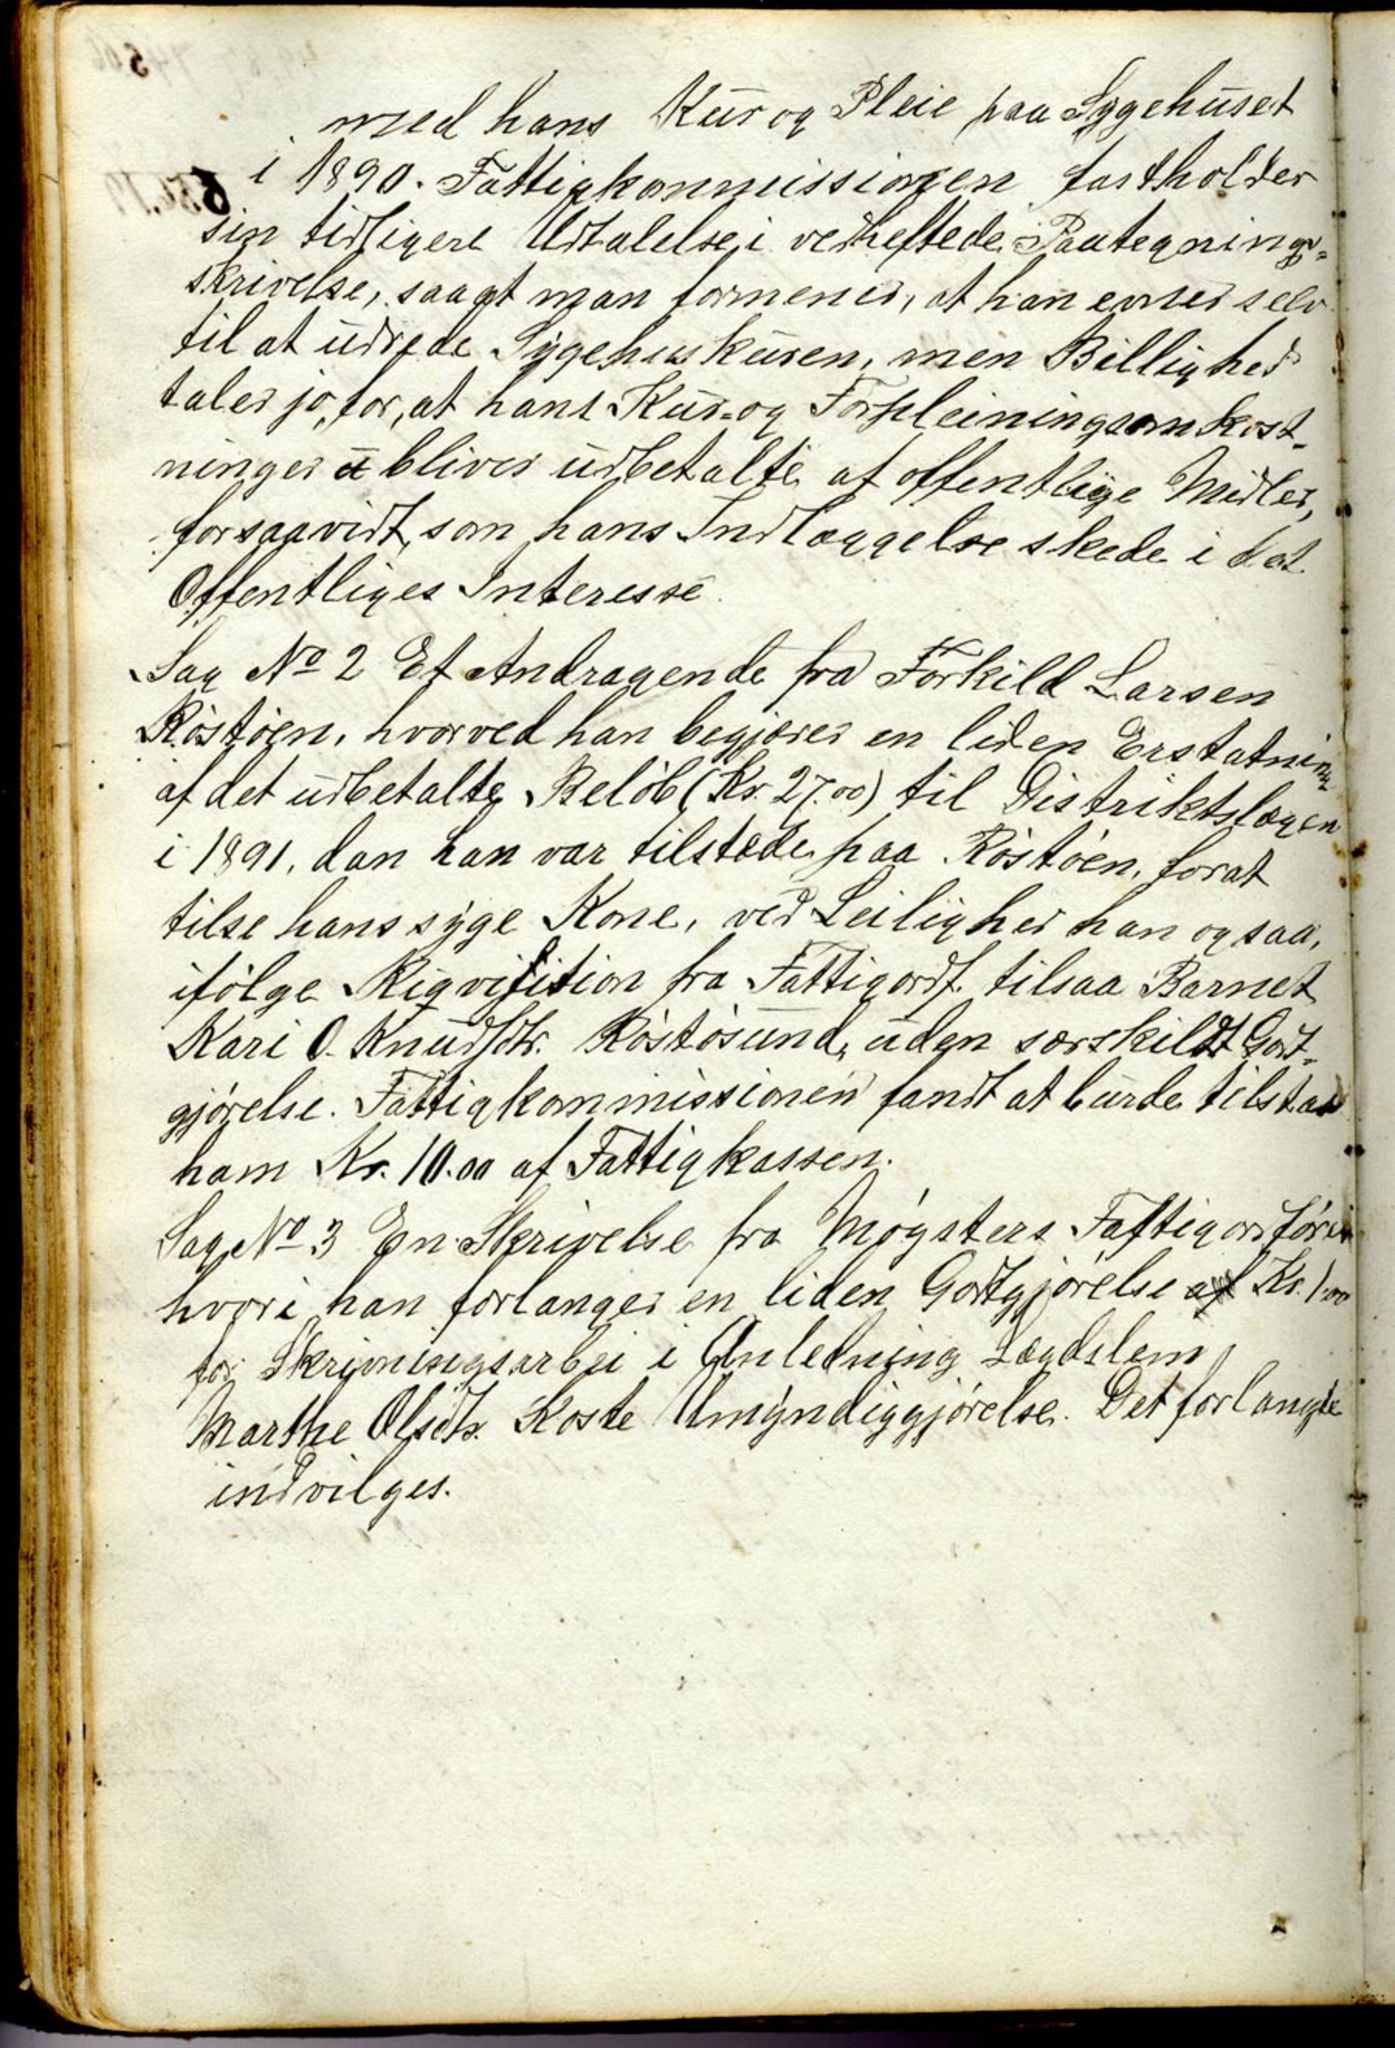 med hans Kur og Pleie paa Sygehuset
i 1890. Fattigkommissionen fastholder
sin tidligere Udtalelse i vedheftede Paategnings-
skrivelse, saagt man formener, at han evner selv
til at udrede Sygehuskuren, men Billighed
taler jo, for, at hans Kur- og Forpleiningsomkost-
ninger bliver udbetalte af offentlige Midler,
forsaavidt, som hans Indlæggelse skede i det
Offentliges Interesse.
Sag No 2 Et Andragende fra Torkild Larsen
Röstöen, hvorved han begjærer en liden Erstatning
af det udbetalte Belöb (Kr. 27.00) til Distriktslægen
i 1891, dan han var tilstede paa Röstöen, forat
tilse hans syge Kone, ved Leilighed han ogsaa,
ifölge Riqvisition fra Fattigordf. tilsaa Barnet
Kari O. Knudsdtr. Röstösund, uden særskildt Godt-
gjörelse. Fattigkommissionen fandt at burde tilstaa
ham Kr. 10.00 af Fattigkassen.
Sag No 3 En Skrivelse fra Møgsters Fattigordförer
hvori han forlanger en liden Godtgjörelse af Kr. 1.00
for Skrivningsarbei i Anledning Lægdslem
Marthe Olsdtr. Koste Umyndiggjörelse. Det forlangte
indvilges.